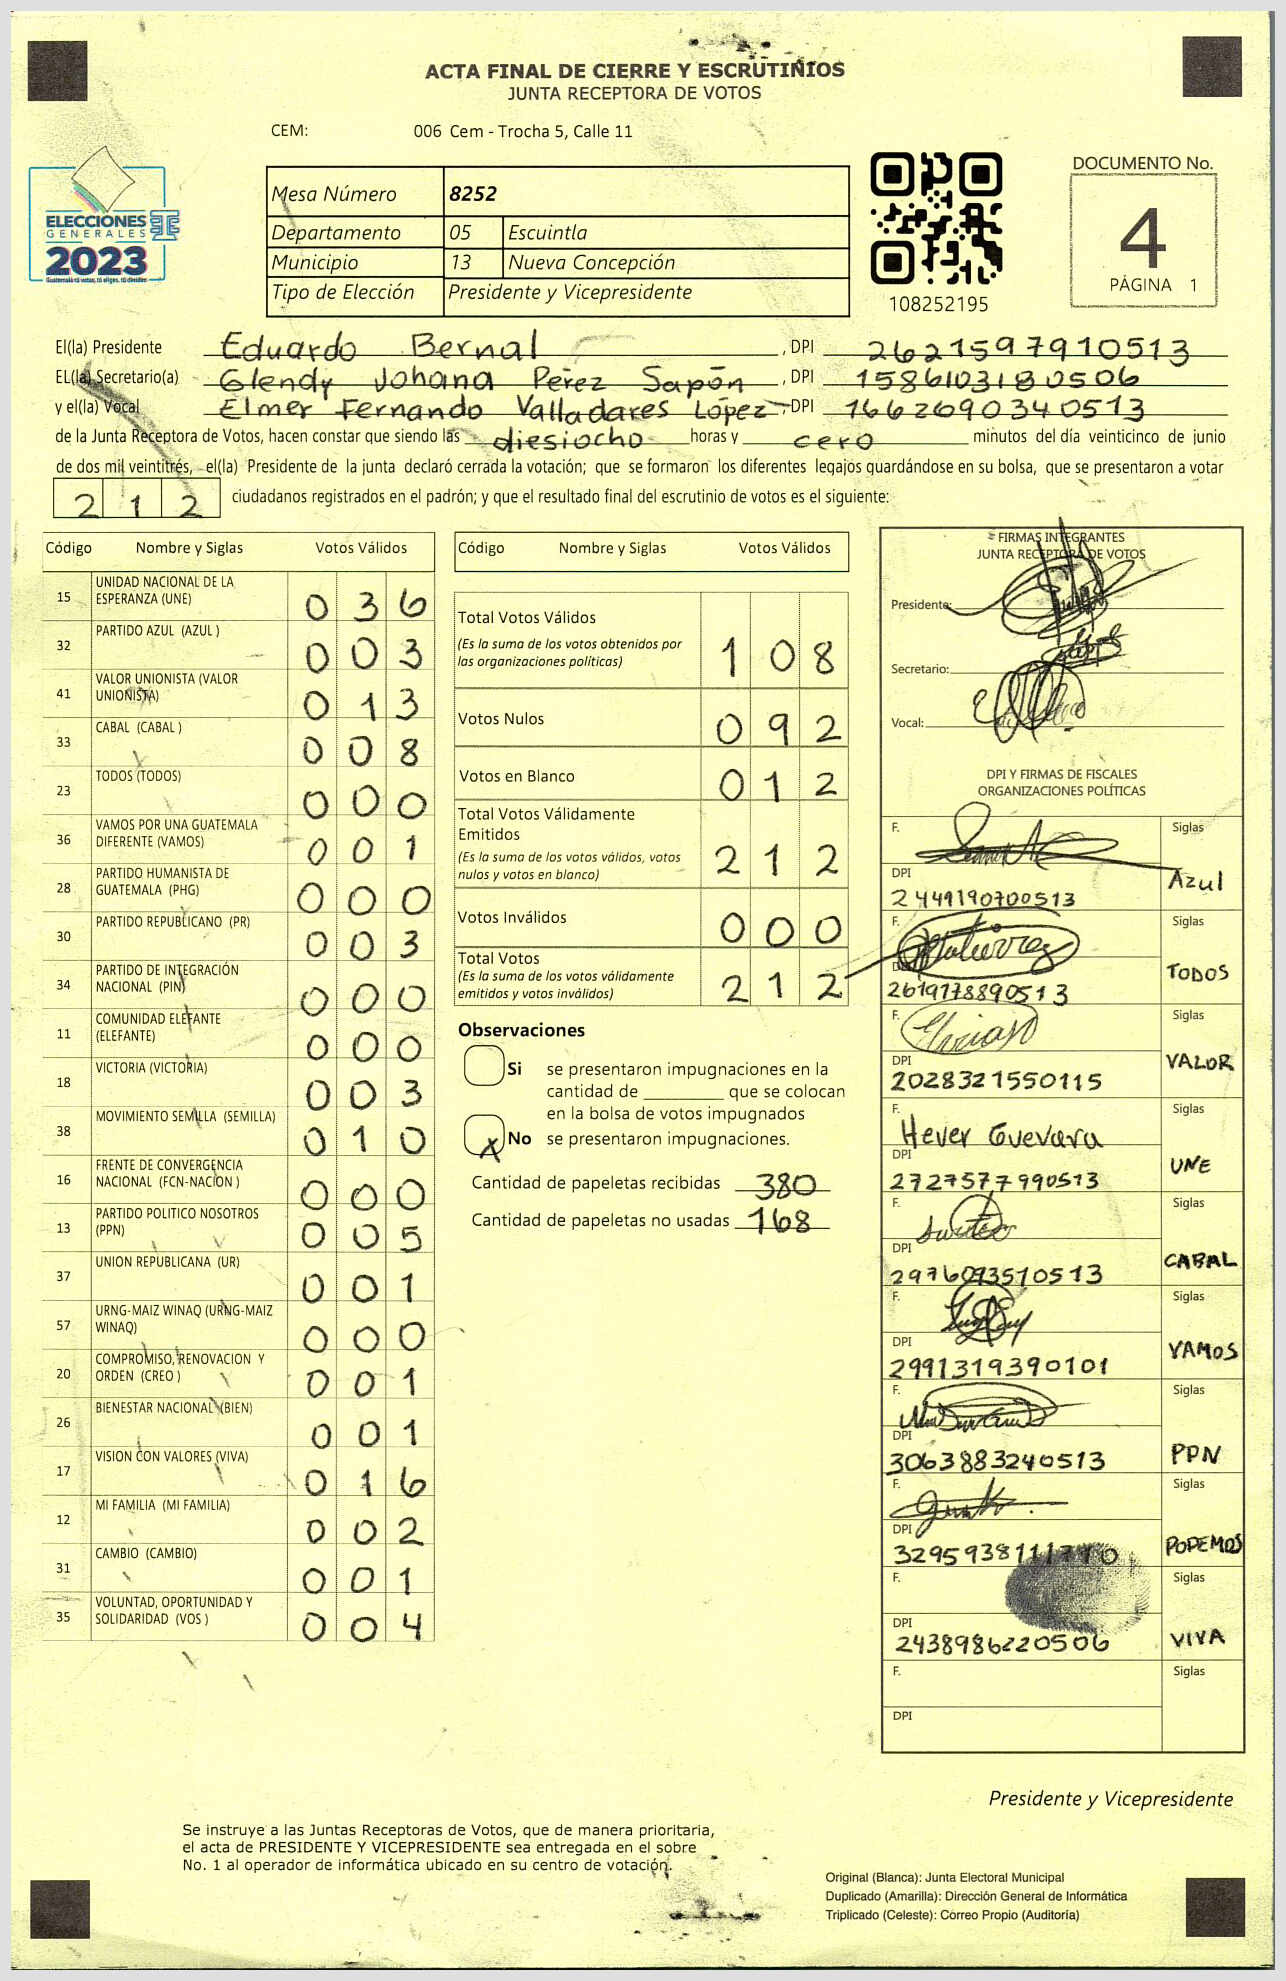 ACTA FINAL DE CIERRE Y ESCRUTINIOS
JUNTA RECEPTORA DE VOTOS
CEM: 006 Cem - Trocha 5, Calle 11
ELECCIONES
GENERALES
2023
Mesa Número 8252
Departamento 05 Escuintla
Municipio 13 Nueva Concepción
Tipo de Elección Presidente y Vicepresidente
108252195
DOCUMENTO No.
4
PÁGINA 1
El(la) Presidente Eduardo Bernal , DPI 2621597910513
EL(la) Secretario(a) Glendy Johana Pérez Sapón , DPI 1586103180506
y el(la) Vocal Elmer Fernando Valladares López , DPI 1662690340513
de la Junta Receptora de Votos, hacen constar que siendo las diesiocho horas y cero minutos del día veinticinco de junio
de dos mil veintitrés, el(la) Presidente de la junta declaró cerrada la votación; que se formaron los diferentes legajos guardándose en su bolsa, que se presentaron a votar
212 ciudadanos registrados en el padrón; y que el resultado final del escrutinio de votos es el siguiente:
Código Nombre y Siglas Votos Válidos
15 UNIDAD NACIONAL DE LA ESPERANZA (UNE) 036
32 PARTIDO AZUL (AZUL ) 003
41 VALOR UNIONISTA (VALOR UNIONISTA) 013
33 CABAL (CABAL ) 008
23 TODOS (TODOS) 000
36 VAMOS POR UNA GUATEMALA DIFERENTE (VAMOS) 001
28 PARTIDO HUMANISTA DE GUATEMALA (PHG) 000
30 PARTIDO REPUBLICANO (PR) 003
34 PARTIDO DE INTEGRACIÓN NACIONAL (PIN) 000
11 COMUNIDAD ELEFANTE (ELEFANTE) 000
18 VICTORIA (VICTORIA) 003
38 MOVIMIENTO SEMILLA (SEMILLA) 010
16 FRENTE DE CONVERGENCIA NACIONAL (FCN-NACION ) 000
13 PARTIDO POLITICO NOSOTROS (PPN) 005
37 UNION REPUBLICANA (UR) 001
57 URNG-MAIZ WINAQ (URNG-MAIZ WINAQ) 000
20 COMPROMISO, RENOVACION Y ORDEN (CREO ) 001
26 BIENESTAR NACIONAL (BIEN) 001
17 VISION CON VALORES (VIVA) 016
12 MI FAMILIA (MI FAMILIA) 002
31 CAMBIO (CAMBIO) 001
35 VOLUNTAD, OPORTUNIDAD Y SOLIDARIDAD (VOS ) 004
Código Nombre y Siglas Votos Válidos
Total Votos Válidos 108
(Es la suma de los votos obtenidos por
las organizaciones políticas)
Votos Nulos 092
Votos en Blanco 012
Total Votos Válidamente
Emitidos 212
(Es la suma de los votos válidos, votos
nulos y votos en blanco)
Votos Inválidos 000
Total Votos 212
(Es la suma de los votos válidamente
emitidos y votos inválidos)
Observaciones
Si se presentaron impugnaciones en la
cantidad de ________ que se colocan
en la bolsa de votos impugnados
X No se presentaron impugnaciones.
Cantidad de papeletas recibidas 380
Cantidad de papeletas no usadas 168
FIRMAS INTEGRANTES
JUNTA RECEPTORA DE VOTOS
Presidente:
Secretario:
Vocal:
DPI Y FIRMAS DE FISCALES
ORGANIZACIONES POLÍTICAS
F. Siglas
DPI 2449190700513 Azul
F. Gutiérrez Siglas
DPI 2619778890513 TODOS
F. Siglas
DPI 2028321550115 VALOR
F. Hever Guevara Siglas
DPI 2727577990513 UNE
F. Siglas
DPI 2976093510513 CABAL
F. Siglas
DPI 2991319390101 VAMOS
F. Siglas
DPI 3063883240513 PPN
F. Siglas
DPI PODEMOS
F. Siglas
DPI 2438986220506 VIVA
F. Siglas
DPI
Presidente y Vicepresidente
Se instruye a las Juntas Receptoras de Votos, que de manera prioritaria,
el acta de PRESIDENTE Y VICEPRESIDENTE sea entregada en el sobre
No. 1 al operador de informática ubicado en su centro de votación.
Original (Blanca): Junta Electoral Municipal
Duplicado (Amarilla): Dirección General de Informática
Triplicado (Celeste): Correo Propio (Auditoría)